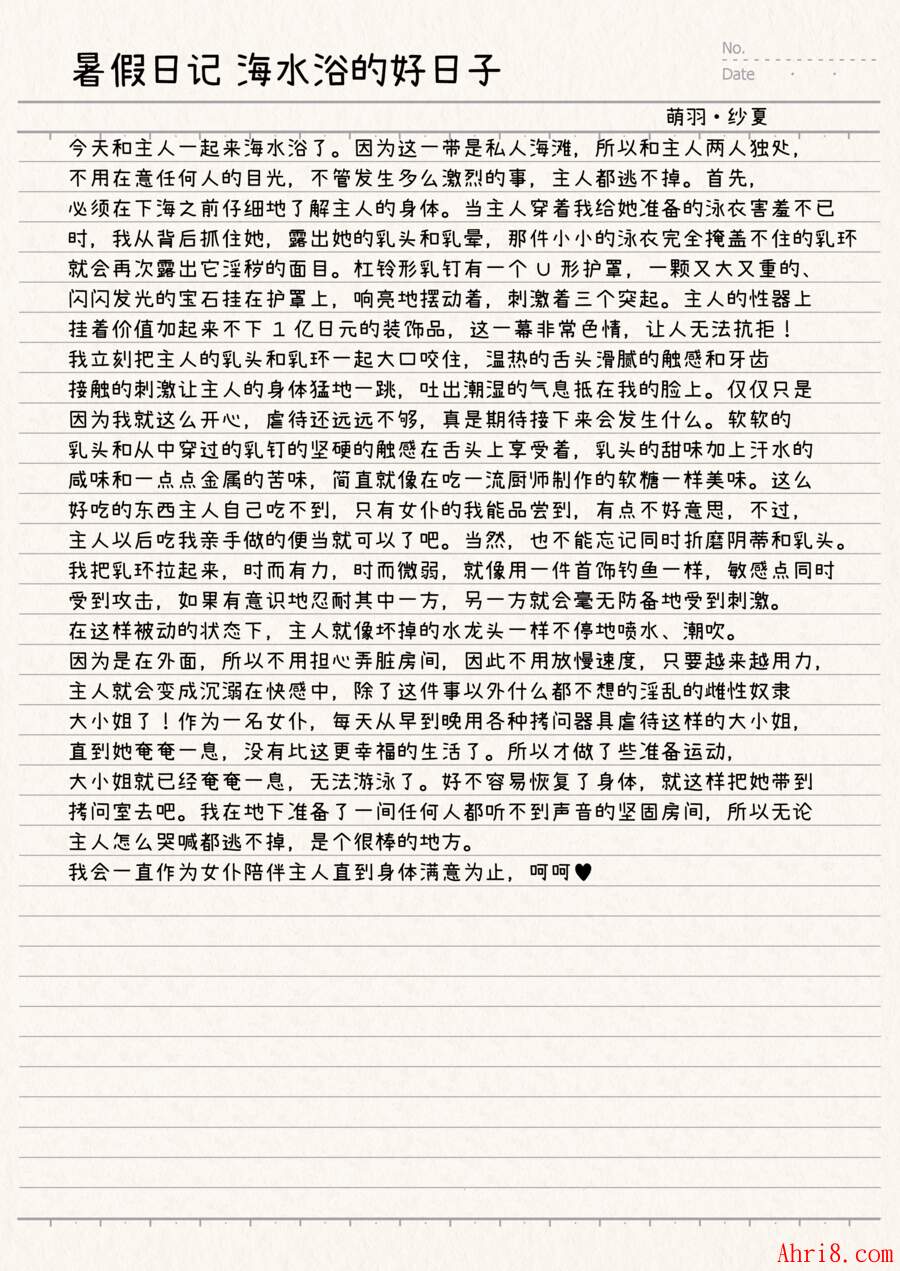 暑假日记 海水浴的好日子
No.
Date
萌羽·纱夏
今天和主人一起来海水浴了。因为这一带是私人海滩，所以和主人两人独处，
不用在意任何人的目光，不管发生多么激烈的事，主人都逃不掉。首先，
必须在下海之前仔细地了解主人的身体。当主人穿着我给她准备的泳衣害羞不已
时，我从背后抓住她，露出她的乳头和乳晕，那件小小的泳衣完全掩盖不住的乳环
就会再次露出它淫秽的面目。杠铃形乳钉有一个 U 形护罩，一颗又大又重的、
闪闪发光的宝石挂在护罩上，响亮地摆动着，刺激着三个突起。主人的性器上
挂着价值加起来不下 1 亿日元的装饰品，这一幕非常色情，让人无法抗拒！
我立刻把主人的乳头和乳环一起大口咬住，温热的舌头滑腻的触感和牙齿
接触的刺激让主人的身体猛地一跳，吐出潮湿的气息抵在我的脸上。仅仅只是
因为我就这么开心，虐待还远远不够，真是期待接下来会发生什么。软软的
乳头和从中穿过的乳钉的坚硬的触感在舌头上享受着，乳头的甜味加上汗水的
咸味和一点点金属的苦味，简直就像在吃一流厨师制作的软糖一样美味。这么
好吃的东西主人自己吃不到，只有女仆的我能品尝到，有点不好意思，不过，
主人以后吃我亲手做的便当就可以了吧。当然，也不能忘记同时折磨阴蒂和乳头。
我把乳环拉起来，时而有力，时而微弱，就像用一件首饰钓鱼一样，敏感点同时
受到攻击，如果有意识地忍耐其中一方，另一方就会毫无防备地受到刺激。
在这样被动的状态下，主人就像坏掉的水龙头一样不停地喷水、潮吹。
因为是在外面，所以不用担心弄脏房间，因此不用放慢速度，只要越来越用力，
主人就会变成沉溺在快感中，除了这件事以外什么都不想的淫乱的雌性奴隶
大小姐了！作为一名女仆，每天从早到晚用各种拷问器具虐待这样的大小姐，
直到她奄奄一息，没有比这更幸福的生活了。所以才做了些准备运动，
大小姐就已经奄奄一息，无法游泳了。好不容易恢复了身体，就这样把她带到
拷问室去吧。我在地下准备了一间任何人都听不到声音的坚固房间，所以无论
主人怎么哭喊都逃不掉，是个很棒的地方。
我会一直作为女仆陪伴主人直到身体满意为止，呵呵♥
Ahri8.com